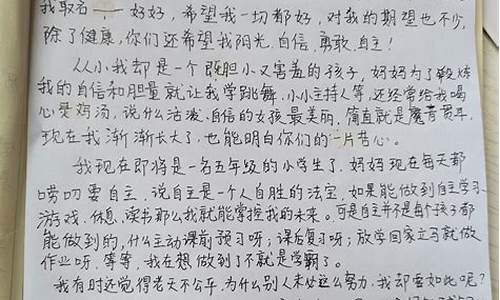 我取名——好好，希望我一切都好，对我的期望也不少，
除了健康，你们还希望我阳光、自信、勇敢、自主！
从小我却是一个既胆小又害羞的孩子，妈妈为了锻炼
我的自信和胆量就让我学跳舞、小小主持人等，还经常给我喝
心灵鸡汤，说什么活泼、自信的女孩最美丽，简直就是魔音贯耳，
现在我渐渐长大了，也能明白你们的一片苦心。
我现在即将是一名五年级的小学生了，妈妈现在每天都
唠叨要自主，说自主是一个人自胜的法宝，如果能做到自主学习、
游戏、休息、读书那么我就能掌控我的未来。可是自主并不是每个孩子都
能做到的，什么主动课前预习呀；课后复习呀；放学回家立马就做
作业呀，等等，我在想做到了不就是学霸了。
我有时还觉得老天不公平，为什么别人未必这么努力，我却要如此呢？